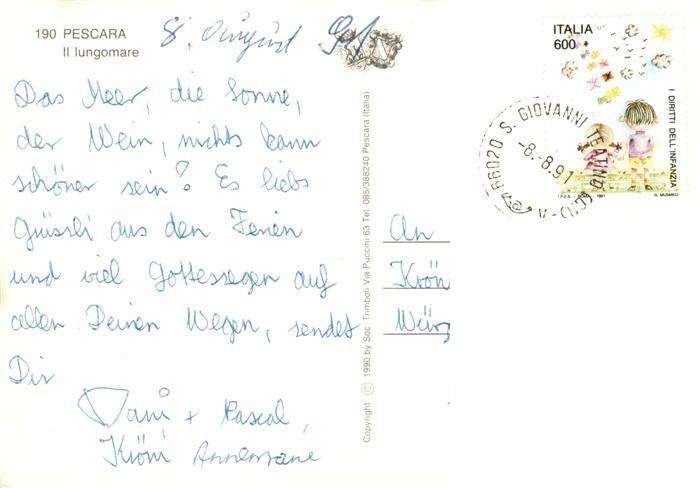 190 PESCARA
Il lungomare
8. August
Das Meer, die Sonne,
der Wein, nichts kann
schöner sein! Es liebs
Grüssli aus den Ferien
und viel Gottessegen auf
allen Deinen Wegen, sendet
Dir
Dani + Pascal,
Kröni Annemarie
Copyright © 1990 by Soc. Trimboli Via Puccini 63 Tel. 085/388240 Pescara (Italia)
An
Krön
Würz
ITALIA
600
I DIRITTI DELL'INFANZIA
I.P.Z.S. 1991
66020 S. GIOVANNI TEATINO (CH)-A
-8.-8.91